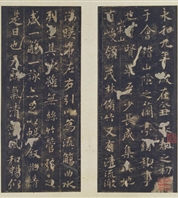 永和九年歲在癸丑暮春之初
于會稽山陰之蘭亭脩稧事
也群賢畢至少長咸集此地
有峻領茂林脩竹又有清流激
湍暎帶左右引以為流觴曲水
列坐其次雖無絲竹管弦之
盛一觴一詠亦足以暢
是日也天朗氣清惠風和暢仰